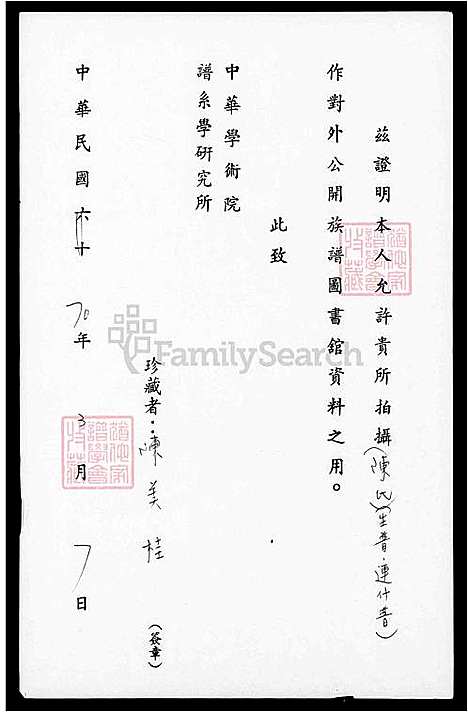 茲證明本人允許貴所拍攝(陳氏)(生普.連什普)
作對外公開族譜圖書舘資料之用。
此致
中華學術院
譜系學研究所
珍藏者:陳美桂(簽章)
中華民國 70年3月7日
FamilySearch